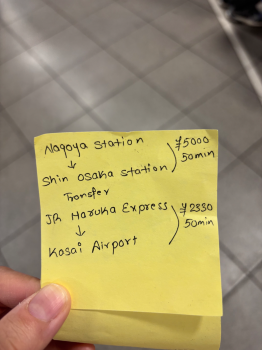 Nagoya station
↓
Shin Osaka station
¥5000
50min
Transfer
JR Haruka Express
↓
Kasai Airport
¥2330
50min